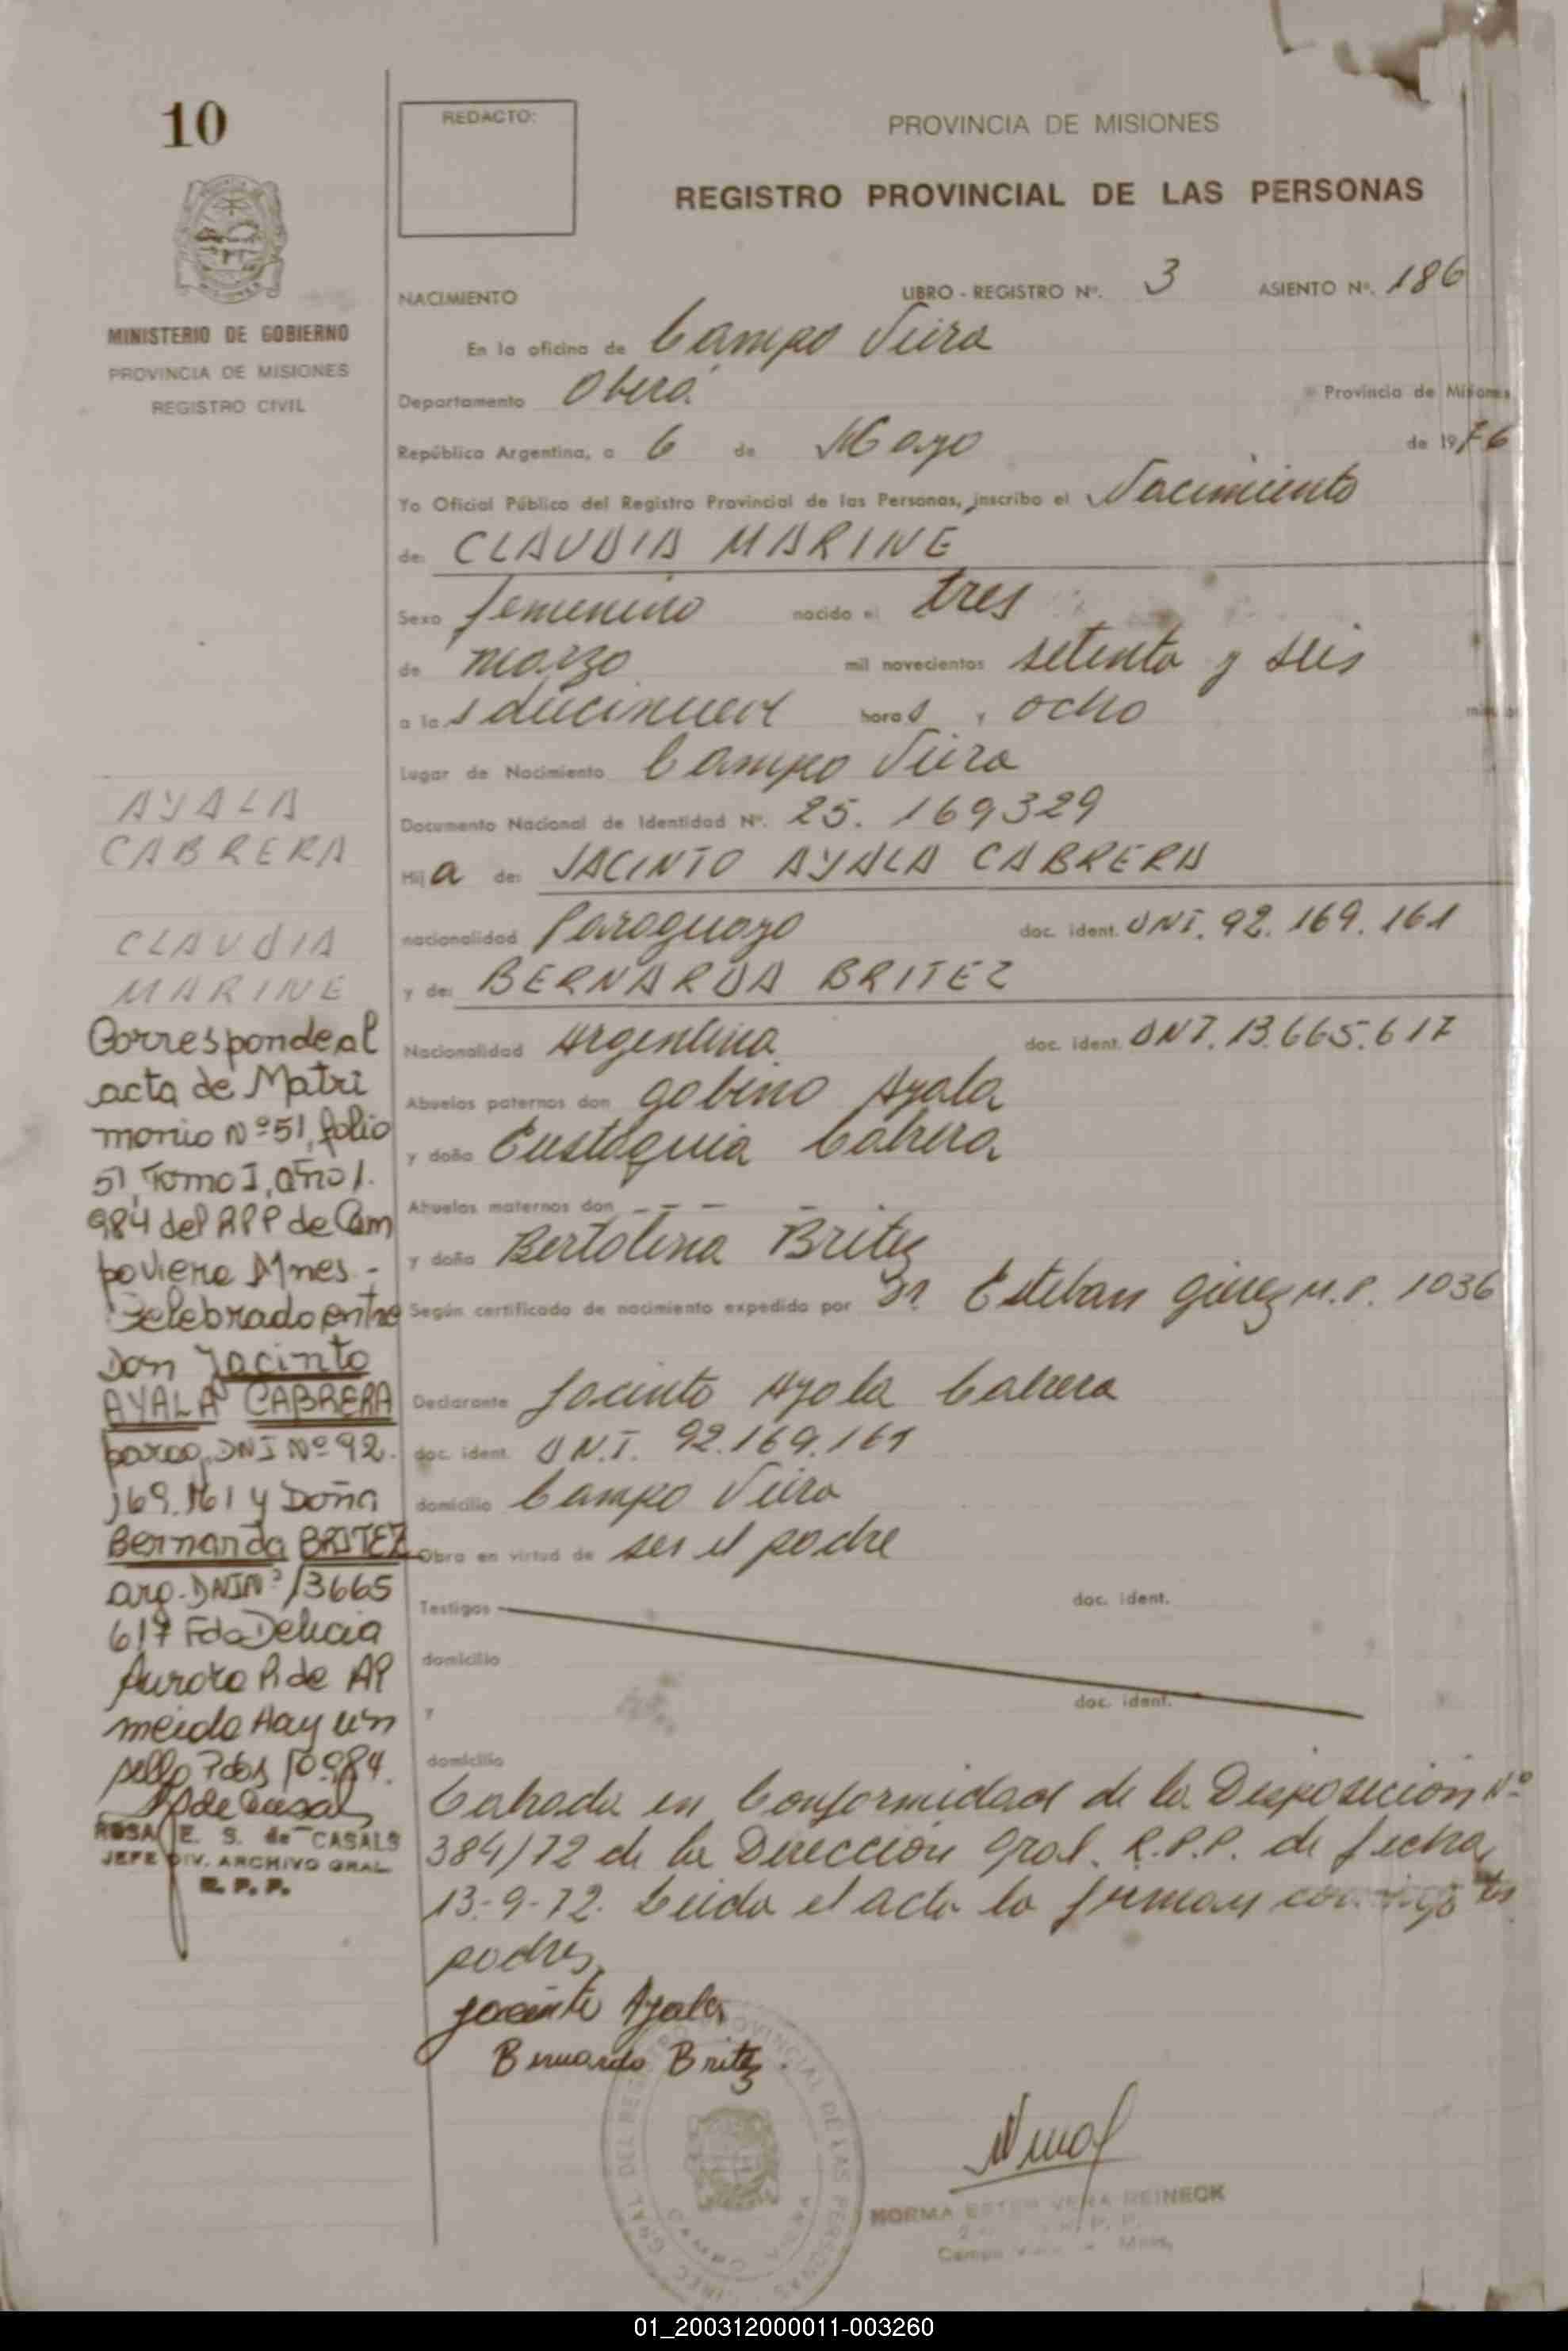 10
REDACTO:
PROVINCIA DE MISIONES
REGISTRO PROVINCIAL DE LAS PERSONAS
MINISTERIO DE GOBIERNO
PROVINCIA DE MISIONES
REGISTRO CIVIL
NACIMIENTO LIBRO - REGISTRO Nº. 3 ASIENTO Nº. 186
En la oficina de Campo Viera
Departamento Oberá Provincia de Misiones
República Argentina, a 6 de Mayo de 1976
Yo Oficial Público del Registro Provincial de las Personas, inscribo el Nacimiento
de: CLAUDIA MARINE
Sexo femenino nacido el tres
de marzo mil novecientos setenta y seis
a las diecinueve horas y ocho
Lugar de Nacimiento Campo Viera
Documento Nacional de Identidad Nº. 25.169329
Hija de: JACINTO AYALA CABRERA
nacionalidad Paraguayo doc. ident. DNI. 92.169.161
y de: BERNARDA BRITEZ
Nacionalidad Argentina doc. ident. DNI. 13.665.617
Abuelos paternos don Gabino Ayala
y doña Eustaquia Cabrera
Abuelos maternos don - - - -
y doña Bertolina Britez
Según certificado de nacimiento expedido por Dr. Esteban M.P. 1036
Declarante Jacinto Ayala Cabrera
doc. ident. D.N.I. 92.169.161
domicilio Campo Viera
Obra en virtud de ser el padre
Testigos doc. ident.
domicilio
y doc. ident.
domicilio
Labrada en Conformidad de la Disposición Nº
384/72 de la Dirección Gral. R.P.P. de fecha
13-9-72. Leida el acta la firman conmigo los
padres.
Jacinto Ayala
Bernarda Britez
AYALA
CABRERA
CLAUDIA
MARINE
Corresponde al
acta de Matri
monio Nº 51, folio
51, Tomo I, año 1.
984 del RPP de Cam
poviera Mnes.-
Celebrado entre
Don Jacinto
AYALA CABRERA
parag, DNI Nº 92.
169.161 y Doña
Bernarda BRITEZ
arg. DNI Nº 13665
617 Fdo Delicia
Aurora P. de Al
meida Hay un
sello Pdas 10 984.
ROSA E. S. de CASALS
JEFE DIV. ARCHIVO GRAL
R. P. P.
NORMA ESTER VERA REINECK
Campo Viera - Mnes,
01_200312000011-003260